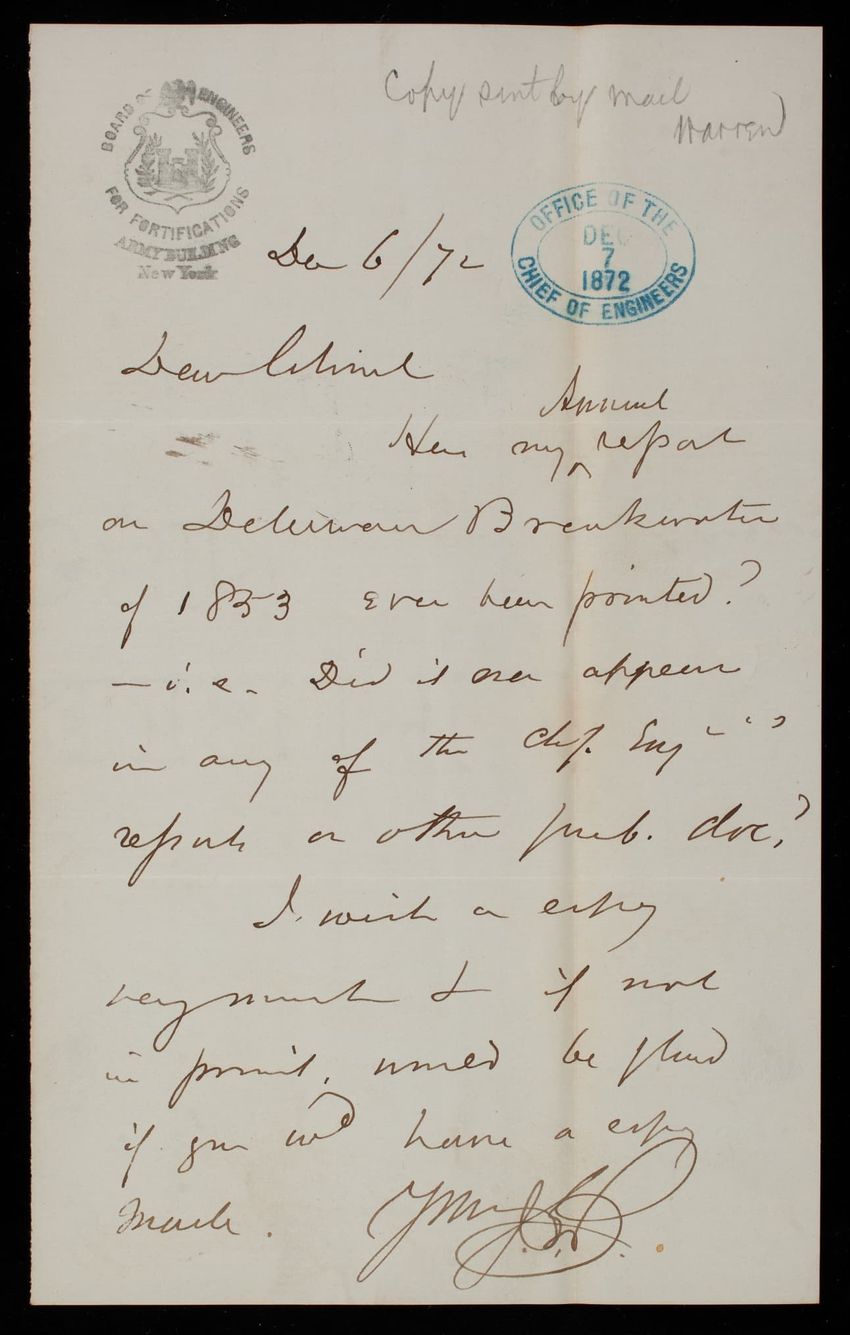 Copy sent by mail
Warren
BOARD OF ENGINEERS
FOR FORTIFICATIONS
ARMY BUILDING
New York
OFFICE OF THE
DEC
7
1872
CHIEF OF ENGINEERS
De 6/72
Dear Colonel
Annual
Has my ^ report
on Delaware Breakwater
of 1853 ever been printed?
— i.e. Did it ever appear
in any of the Chf. Eng
reports or other pub. doc.?
I wish a copy
very much & if not
in print, would be glad
if you wd have a copy
made. Yours